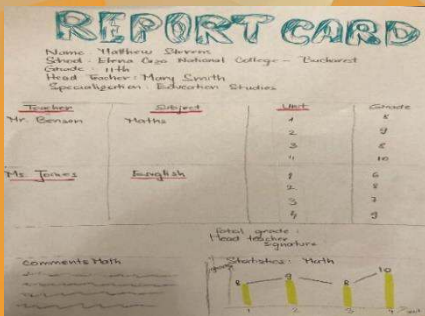 REPORT CARD
Name: Matthew Stevens
School: Elena Cuza National College - Bucharest
Grade: 11th
Head Teacher: Mary Smith
Specialization: Education Studies
Teacher Subject Unit Grade
Mr. Benson Maths 1 8
2 9
3 8
4 10
Ms. Jones English 1 6
2 8
3 7
4 9
Total grade:
Head teacher
signature
Comments Math
Statistics: Math
grade
8 9 8 10
1 2 3 4 unit